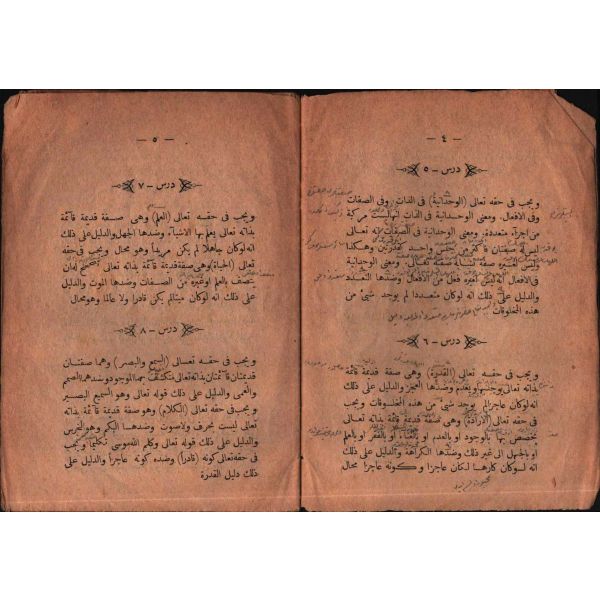 — ٤ —
درس - ٥
ويجب فى حقه تعالى (الوحدانية) فى الذات وفى الصفات
وفى الافعال ومعنى الوحدانية فى الذات انها ليست مركبة
من اجزآء متعددة ومعنى الوحدانية فى الصفات انه تعالى
ليس له صفتان فاكثر من جنس واحد كقدرتين وهكذا
وليس لغيره صفة تشابه صفته تعالى ومعنى الوحدانية
فى الافعال انه ليس لغيره فعل من الافعال وضدها التعدد
والدليل على ذلك انه لوكان متعددا لم يوجد شئ من
هذه المخلوقات
درس - ٦
ويجب فى حقه تعالى (القدرة) وهى صفة قديمة قائمة
بذاته تعالى يوجد بها ويعدم وضدها العجز والدليل على ذلك
انه لوكان عاجزا لم يوجد شئ من هذه المخلوقات ويجب
فى حقه تعالى (الارادة) وهى صفة قديمة قائمة بذاته تعالى
يخصص بها بالوجود او بالعدم او بالغناء او بالفقر او بالعلم
او بالجهل الى غير ذلك وضدها الكراهة والدليل على ذلك
انه لوكان كارها لكان عاجزا وكونه عاجزا محال
— ٥ —
درس - ٧
ويجب فى حقه تعالى (العلم) وهى صفة قديمة قآئمة
بذاته تعالى يعلم بها الاشياء وضدها الجهل والدليل على ذلك
انه لوكان جاهلا لم يكن مريدا وهو محال ويجب فى حقه
تعالى (الحياة) وهى صفة قديمة قائمة بذاته تعالى تصحح له ان
يتصف بالعلم وغيره من الصفات وضدها الموت والدليل
على ذلك انه لوكان ميتا لم يكن قادرا ولا عالما وهو محال
درس - ٨
ويجب فى حقه تعالى (السمع والبصر) وهما صفتان
قديمتان قآئمتان بذاته تعالى ينكشف بهما الموجود وضدهما الصمم
والعمى والدليل على ذلك قوله تعالى وهو السميع البصير
ويجب فى حقه تعالى (الكلام) وهو صفة قديمة قآئمة بذاته
تعالى ليست بحرف ولاصوت وضدها البكم وهو الخرس
والدليل على ذلك قوله تعالى وكلم الله موسى تكليما ويجب
فى حقه تعالى كونه (قادرا) وضده كونه عاجزا والدليل على
ذلك دليل القدرة